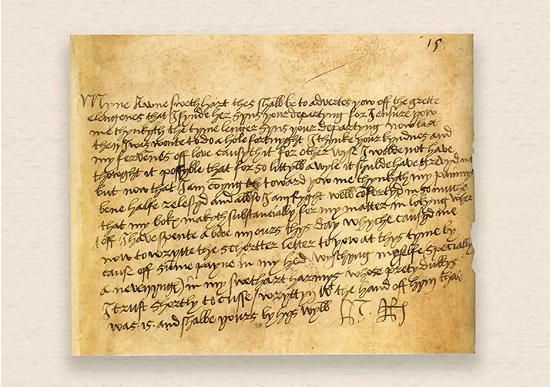 15.
Myne awne swethart thes shall be to advertes yow off the grette
elengenes that I fynde her syns your departyng for I ensure yow
me thynkyth the tyme lenger syns your departyng now last
then I was wonte to do a hole fortnyght I thynke your kyndnes and
my fervenes off love causyth it for other wyse I wolde not have
thowght it possyble that for so littyll a wyle it shulde have grevyd me
but now that I am comyng toward yow me thynkyth my painnys
bene halfe relesyd and allso I am ryght well comfortyd in so muche
that my boke makyth substancially for my matter in lokyng wher
off I have spente above ours thys day whyche causyd me
now to wrytte the schortter letter to yow at thys tyme by
cause off summe payne in my hed wischyng my selfe specially
a nevynyng in my swethart harmys whose prety dukkys
I trust shortly to cusse wryttyn with the hand off hym that
was is and shalbe yours by hys wyll